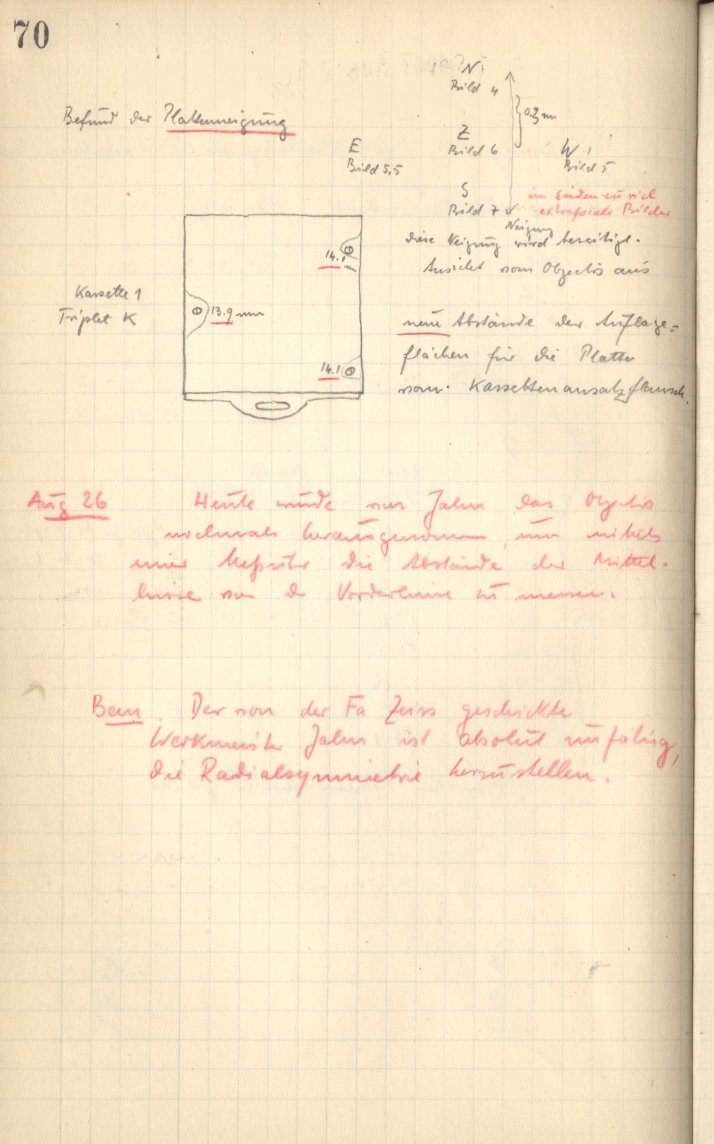 70
N
Bild 4
0.2 mm
Befund der Plattenneigung
E
Bild 5,5
Z
Bild 6
W
Bild 5
S
Bild 7
im Süden zu viel
extrafocale Bilder
Neigung
diese Neigung wird beseitigt.
Ansicht vom Objectiv aus
14.1
m
Kassette 1
Triplet K
13.9 mm
neue Abstände der Auflage=
flächen für die Platte
vom Kassettenansatzflansch.
14.1
Aug 26 Heute wurde von Jahn das Objectiv
nochmals herausgenommen, um mittels
einer die Abstände der Mittel-
linse von der Vorderlinse zu messen.
Bem Der von der Fa Zeiss geschickte
Werkmeister Jahn ist absolut unfähig,
die Radialsymmetrie herzustellen.